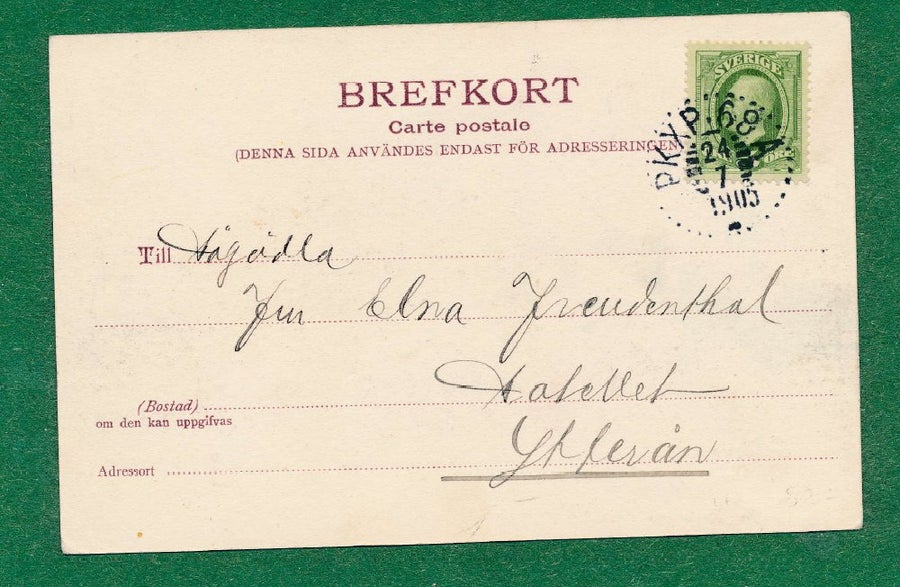 BREFKORT
Carte postale
(DENNA SIDA ANVÄNDES ENDAST FÖR ADRESSERINGEN
SVERIGE
PKXP 68 A
24
7
1905
Till Högädla
Fru Elna Freudenthal
Hotellet
(Bostad)
om den kan uppgifvas
Adressort